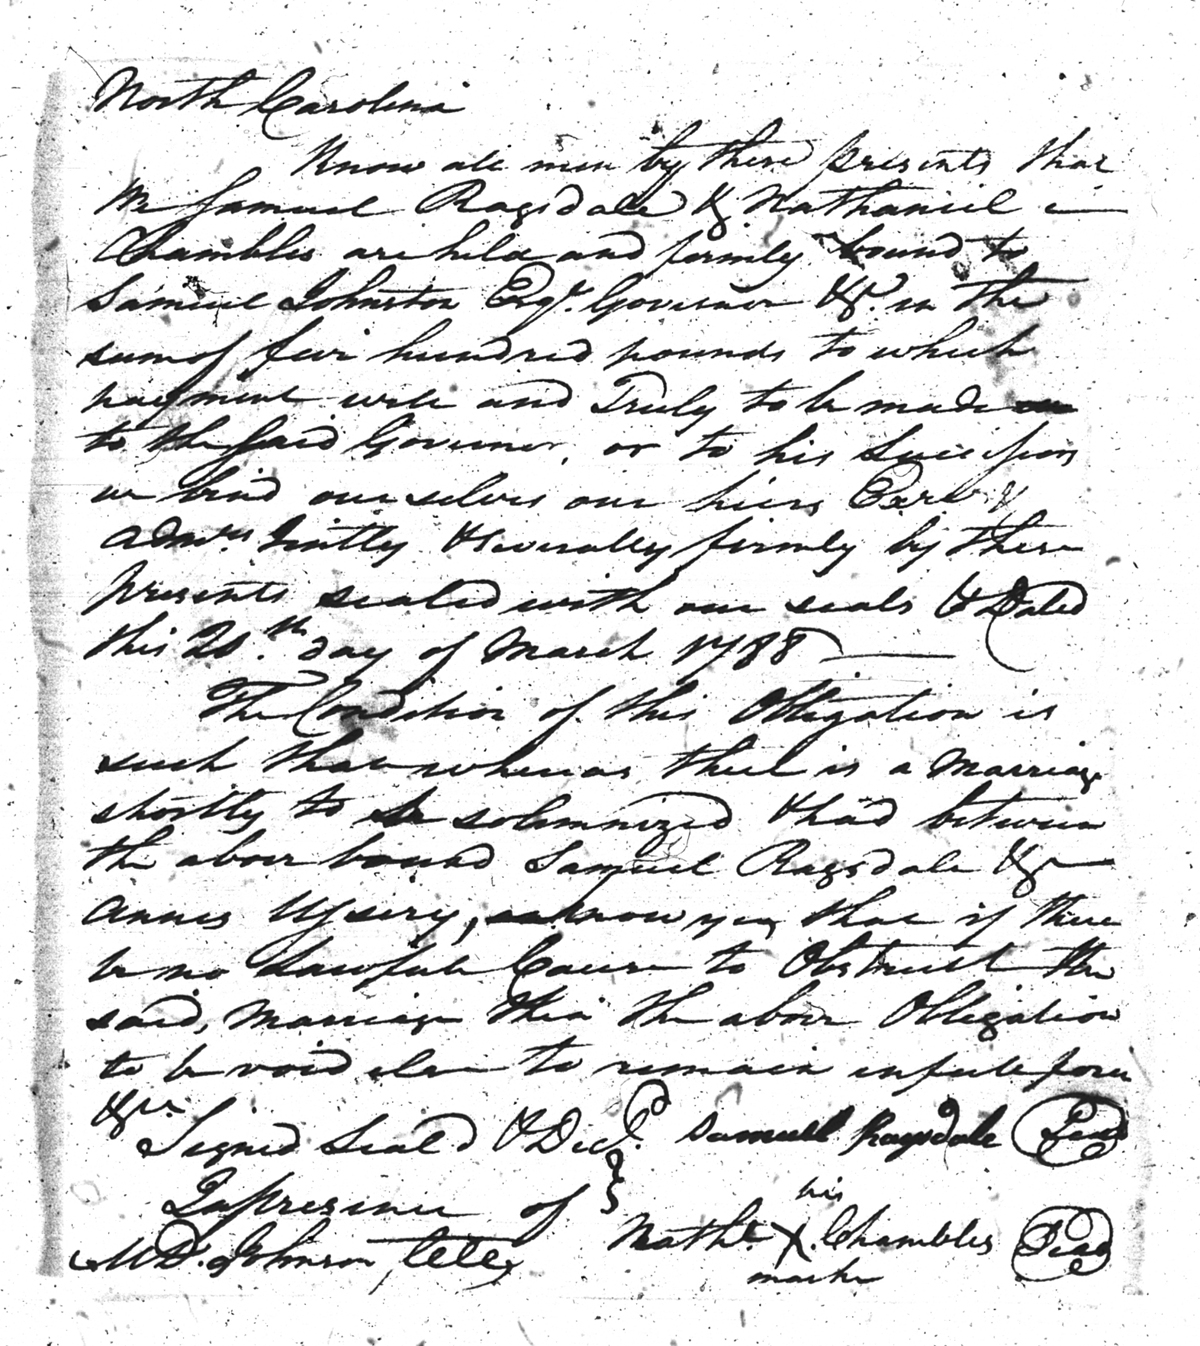 North Carolina
Know all men by these presents that
We Samuel Ragsdale & Nathaniel
Chambles are held and firmly bound to
Samuel Johnston Esqr. Governor &c. in the
sum of five hundred pounds to which
payment well and Truly to be made
to the said Governor, or to his Successors
we bind ourselves our hiers Exrs &
Admrs. Jintly & severally firmly by these
presents sealed with our seals & Dated
this 20.th day of March 1788
The Condition of this Obligation is
such that whereas theel is a Marriage
shortly to be solemnized & had between
the above bound Samuel Ragsdale &
Annes Ussery, know yea that if there
be no Lawfull Cause to Obstruct the
said, Marriage then the above Obligation
to be void else to remain in full force
&c
Signed Seal'd & Deld. Samuell Ragsdale Seal
In presence of
his
Nathl. X. Chambles Seal
mark
Johnson